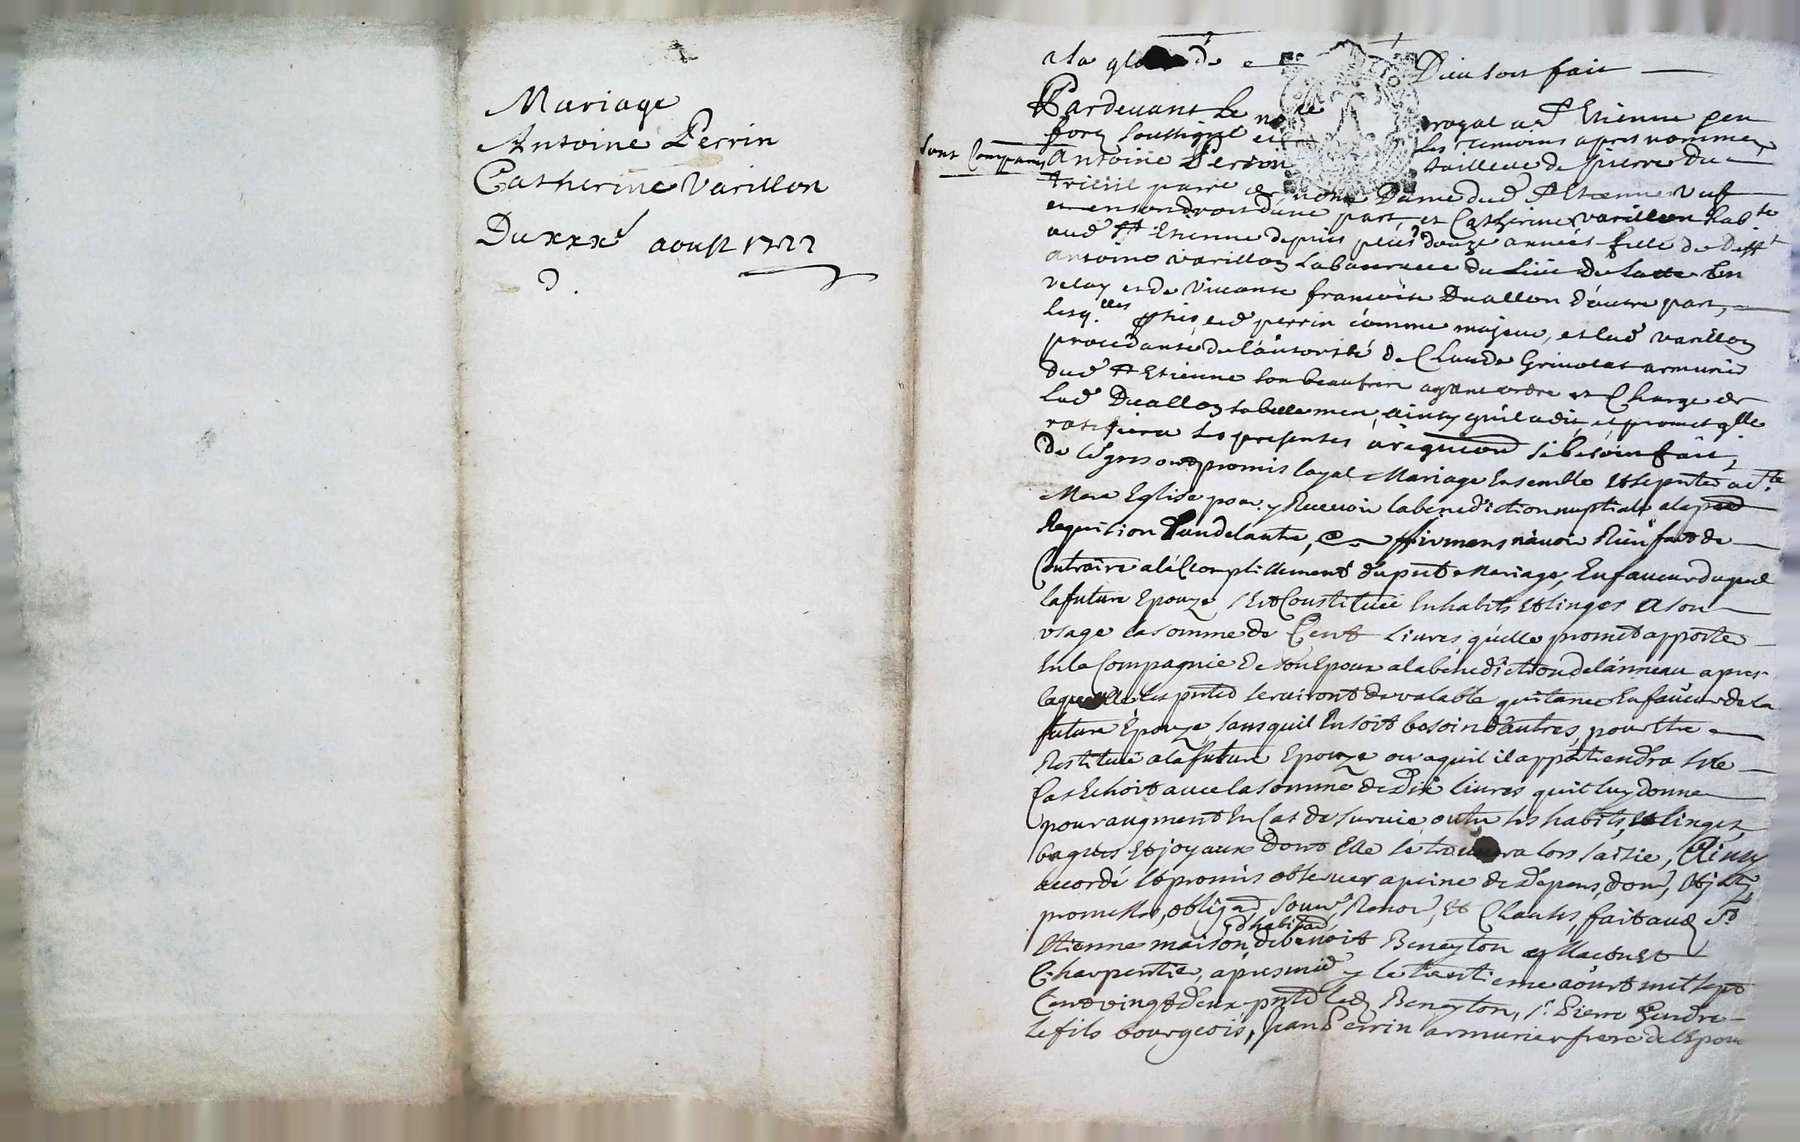 Mariage
Antoine Perrin
Catherine Varillon
Du xxxe aoust 1722
a la gloire de Dieu soit fait
Pardevant le nore royal a St Etienne en
forez soussigné et les temoins apres nommes
sont comparus Antoine Perrin tailleur de pierre du
notre Dame dud St Etienne veuf
et en son droit d'une part, et Catherine varillon habte
aud St Etienne depuis plus douze années fille de defft
antoine varillon laboureur du lieu de en
velay et de vivante françoise Duallon d'autre part,
lesqlles pties, led perrin comme majeur, et lad varillon
procedante de l'autorité de Claude Grivolat armurier
dud St Etienne son beaufrere ayant ordre et Charge de
lad Duallon sa belle mere, ainsy qu'il a dit, et promet qlle
ratifiera les presentes a requisition si besoin fait,
de gré ont promis loyal Mariage Ensemble et se pnter a nte
Mere Eglise pour y Recevoir la benediction nuptiale a la pre
Requisition l'un de lautre, affirmant n'avoir Rien fait de
Contraire a l'accomplissement du pnt Mariage, En faveur duquel
la future Epouze s'est Constituée En habits et linges a son
usage la somme de Cent Livres, qu'elle promet apporter
En la Compagnie de son Epoux a la benediction de l'anneau apres
laquelle les pntes serviront de valable quitance En faveur de la
future Epouze, sans quil en soit besoin d'autres, pour être
Restituée a la future Epouze ou a quil il appartiendra si le
Cas Echoit avec la somme de Dix livres quil luy donne
pour augment En Cas de survie, outre ses habits, et linges,
bagues et joyaux dont Elle se trouvera lors saisie, Ainsy
accordé et promis observer a peine de depens, dom, et
promettes, oblig, soum, Renon, et Clauses, fait aud St
Etienne maison d'habitaon de benoit Beneyton
Charpentier, apres midy le trentieme aoust mil sept
Cent vingt deux pnts led Beneyton, sr Pierre
le fils bourgeois, jean Perrin armurier frere de l'Epoux